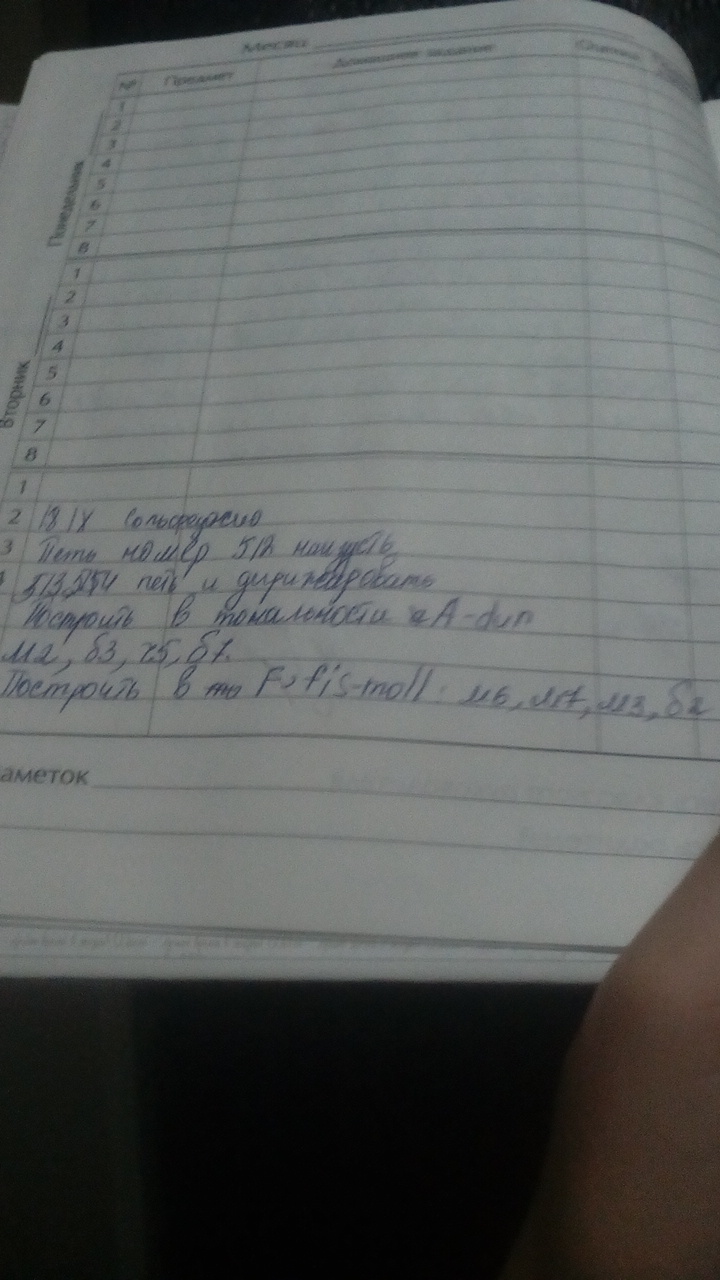 Месяц
№ Предмет Домашнее задание Оценка
Понедельник
1
2
3
4
5
6
7
8
Вторник
1
2
3
4
5
6
7
8
1
2 18 IX Сольфеджио
3 Петь номер 512 наизусть
513, петь и дирижировать
Построить в тональности A-dur
м2, б3, ч5, б7.
Построить в fis-moll: м6, м7, м3, б2
аметок